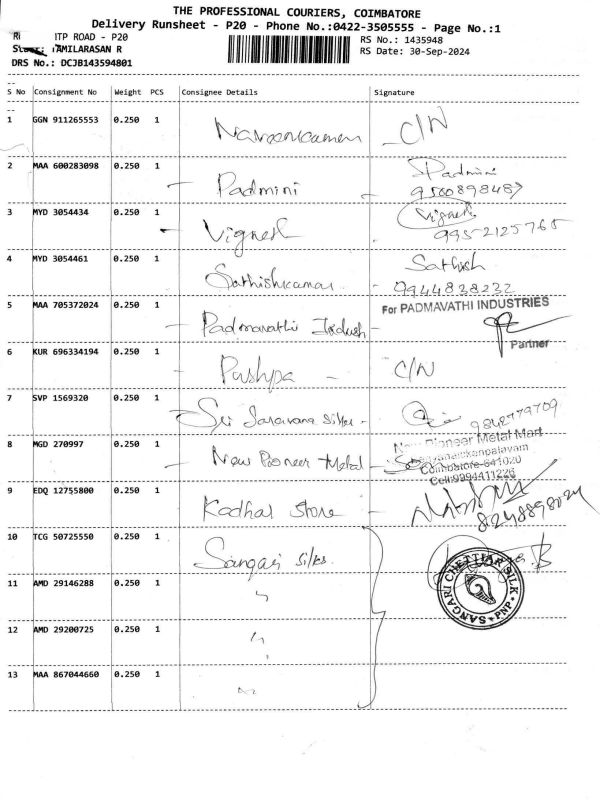 THE PROFESSIONAL COURIERS, COIMBATORE
Delivery Runsheet - P20 - Phone No.:0422-3505555 - Page No.:1
ITP ROAD - P20
RS No.: 1435948
TAMILARASAN R
RS Date: 30-Sep-2024
DRS No.: DCJB143594801
S No Consignment No Weight PCS Consignee Details Signature
1 GGN 911265553 0.250 1 C/N
2 MAA 600283098 0.250 1 Padmini Padmini
9500898487
3 MYD 3054434 0.250 1 Vignesh Vignesh
9952125765
4 MYD 3054461 0.250 1 Sathishkumar Sathish
9944838232
5 MAA 705372024 0.250 1 Padmavathi For PADMAVATHI INDUSTRIES
Partner
6 KUR 696334194 0.250 1 Pushpa C/N
7 SVP 1569320 0.250 1 Sri Saravana Silks 9842779709
8 MGD 270997 0.250 1 New Pioneer Metal New Pioneer Metal Mart
Coimbatore-641020
Cell:9994411226
9 EDQ 12755800 0.250 1 Kadhar Store
8248898024
10 TCG 50725550 0.250 1 Sangari Silks B
SANGARI CHETTIAR SILK PNP
11 AMD 29146288 0.250 1 "
12 AMD 29200725 0.250 1 "
13 MAA 867044660 0.250 1 "